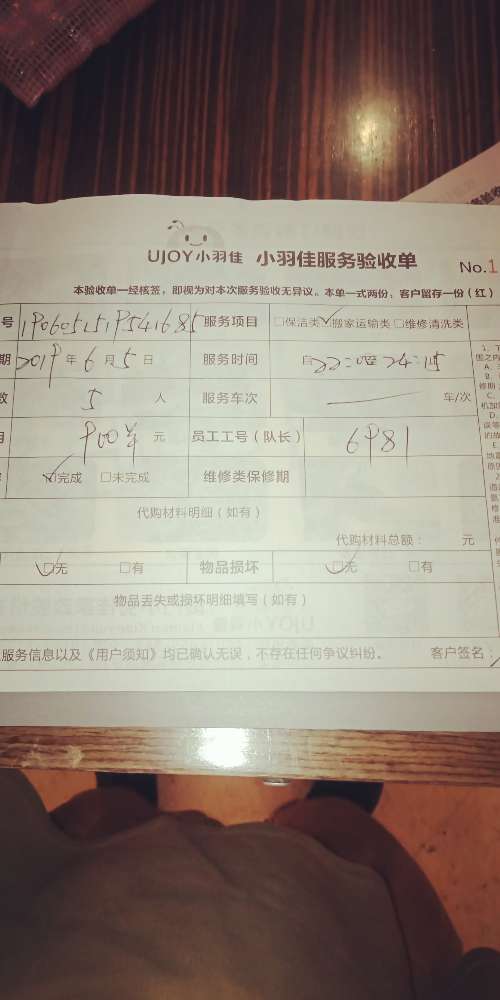 UJOY小羽佳 小羽佳服务验收单 No.1
本验收单一经核签，即视为对本次服务验收无异议。本单一式两份，客户留存一份（红）
号 1906051519541685 服务项目 □保洁类 ☑搬家运输类 □维修清洗类
期 2019年6月5日 服务时间 自22:00至24:15
数 5 人 服务车次 车/次
900 元 员工工号（队长） 6981
☑完成 □未完成 维修类保修期
代购材料明细（如有）
代购材料总额： 元
☑无 □有 物品损坏 ☑无 □有
物品丢失或损坏明细填写（如有）
服务信息以及《用户须知》均已确认无误，不存在任何争议纠纷。 客户签名：